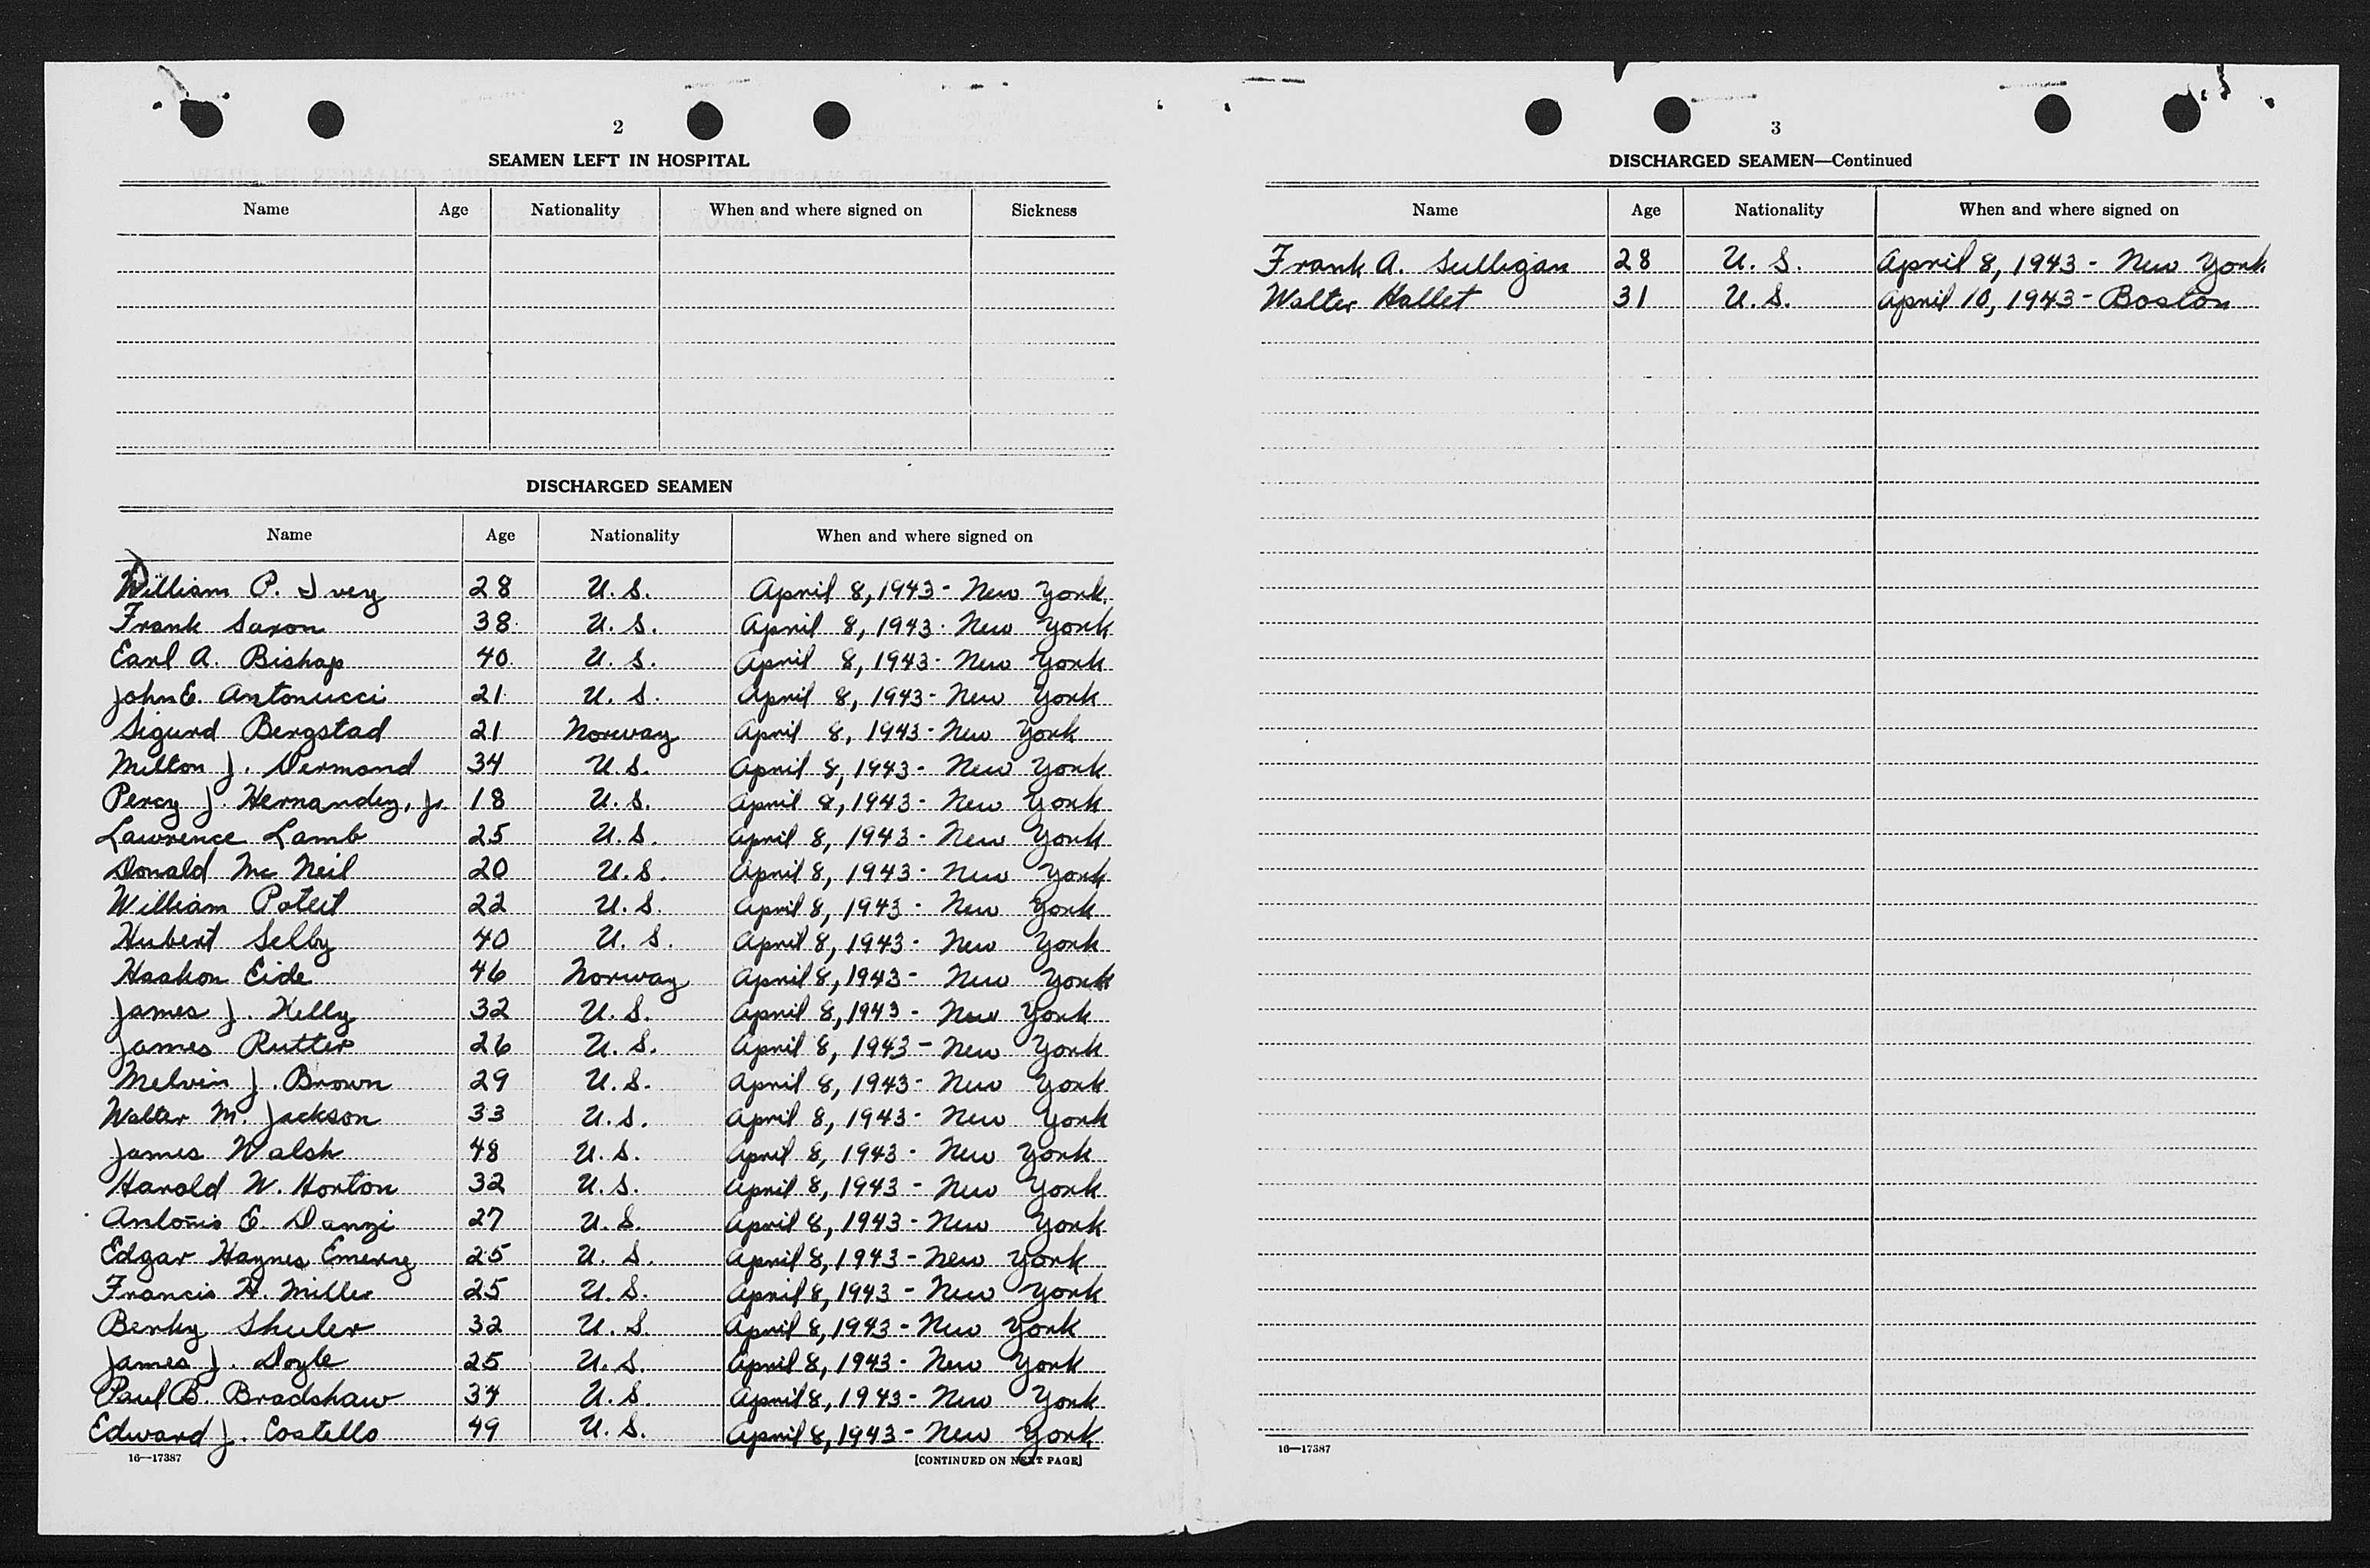 2
SEAMEN LEFT IN HOSPITAL
Name Age Nationality When and where signed on Sickness
DISCHARGED SEAMEN
Name Age Nationality When and where signed on
William P. Ivey 28 U. S. April 8, 1943 - New York
Frank Saxon 38 U. S. April 8, 1943 - New York
Earl A. Bishop 40 U. S. April 8, 1943 - New York
John E. Antonucci 21 U. S. April 8, 1943 - New York
Sigurd Bergstad 21 Norway April 8, 1943 - New York
Milton J. Dermond 34 U. S. April 8, 1943 - New York
Percy J. Hernandez, Jr. 18 U. S. April 8, 1943 - New York
Lawrence Lamb 25 U. S. April 8, 1943 - New York
Donald Mc Neil 20 U. S. April 8, 1943 - New York
William Poteit 22 U. S. April 8, 1943 - New York
Hubert Selby 40 U. S. April 8, 1943 - New York
Haakon Eide 46 Norway April 8, 1943 - New York
James J. Kelly 32 U. S. April 8, 1943 - New York
James Rutter 26 U. S. April 8, 1943 - New York
Melvin J. Brown 29 U. S. April 8, 1943 - New York
Walter M. Jackson 33 U. S. April 8, 1943 - New York
James Walsh 48 U. S. April 8, 1943 - New York
Harold W. Horton 32 U. S. April 8, 1943 - New York
Antonio E. Danzi 27 U. S. April 8, 1943 - New York
Edgar Haynes Emery 25 U. S. April 8, 1943 - New York
Francis H. Miller 25 U. S. April 8, 1943 - New York
Berky Shuler 32 U. S. April 8, 1943 - New York
James J. Doyle 25 U. S. April 8, 1943 - New York
Paul B. Bradshaw 34 U. S. April 8, 1943 - New York
Edward J. Costello 49 U. S. April 8, 1943 - New York
16—17387 [CONTINUED ON NEXT PAGE]
3
DISCHARGED SEAMEN—Continued
Name Age Nationality When and where signed on
Frank A. Sulligan 28 U. S. April 8, 1943 - New York
Walter Hallet 31 U. S. April 10, 1943 - Boston
16—17387